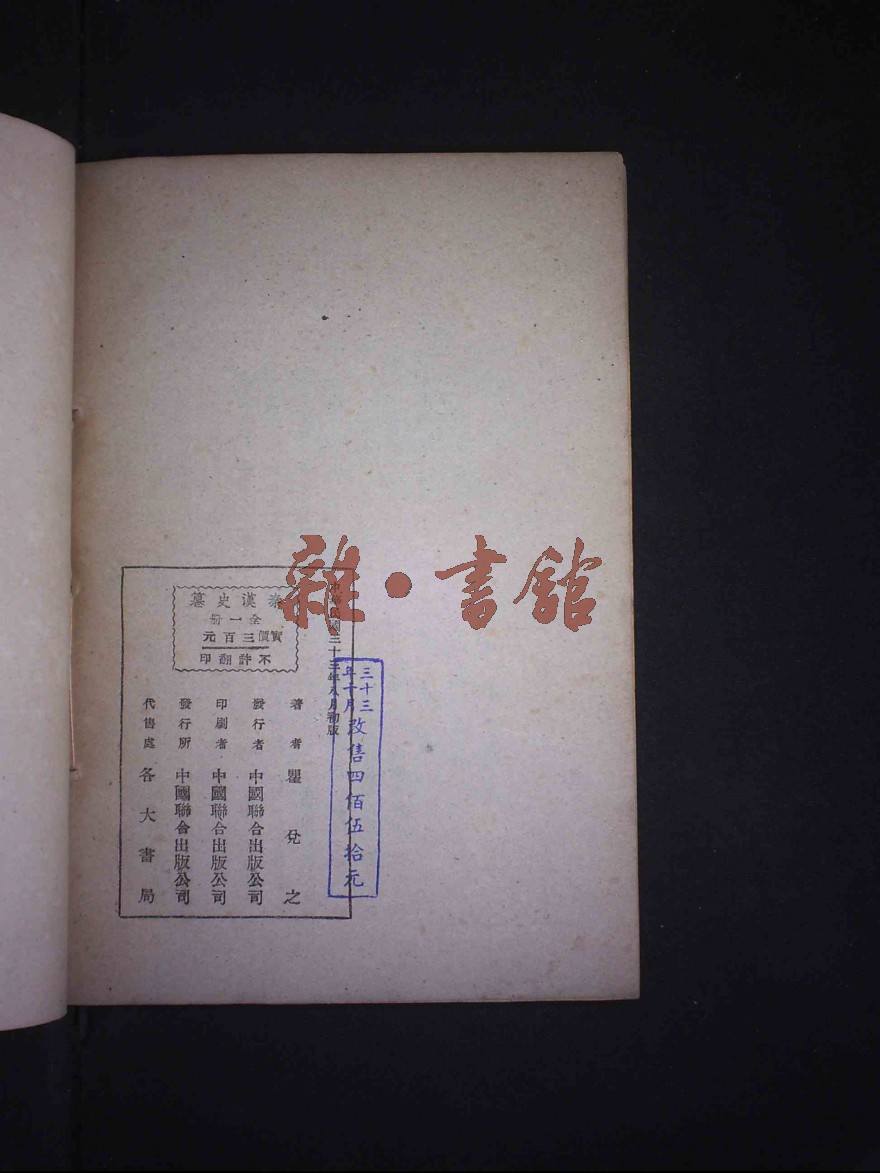 雜·書館
中華民國三十三年八月初版
秦漢史纂
全一冊
實價三百元
不許翻印
著者 瞿兌之
發行者 中國聯合出版公司
印刷者 中國聯合出版公司
發行所 中國聯合出版公司
代售處 各大書局
三十三年十月改售四佰伍拾元